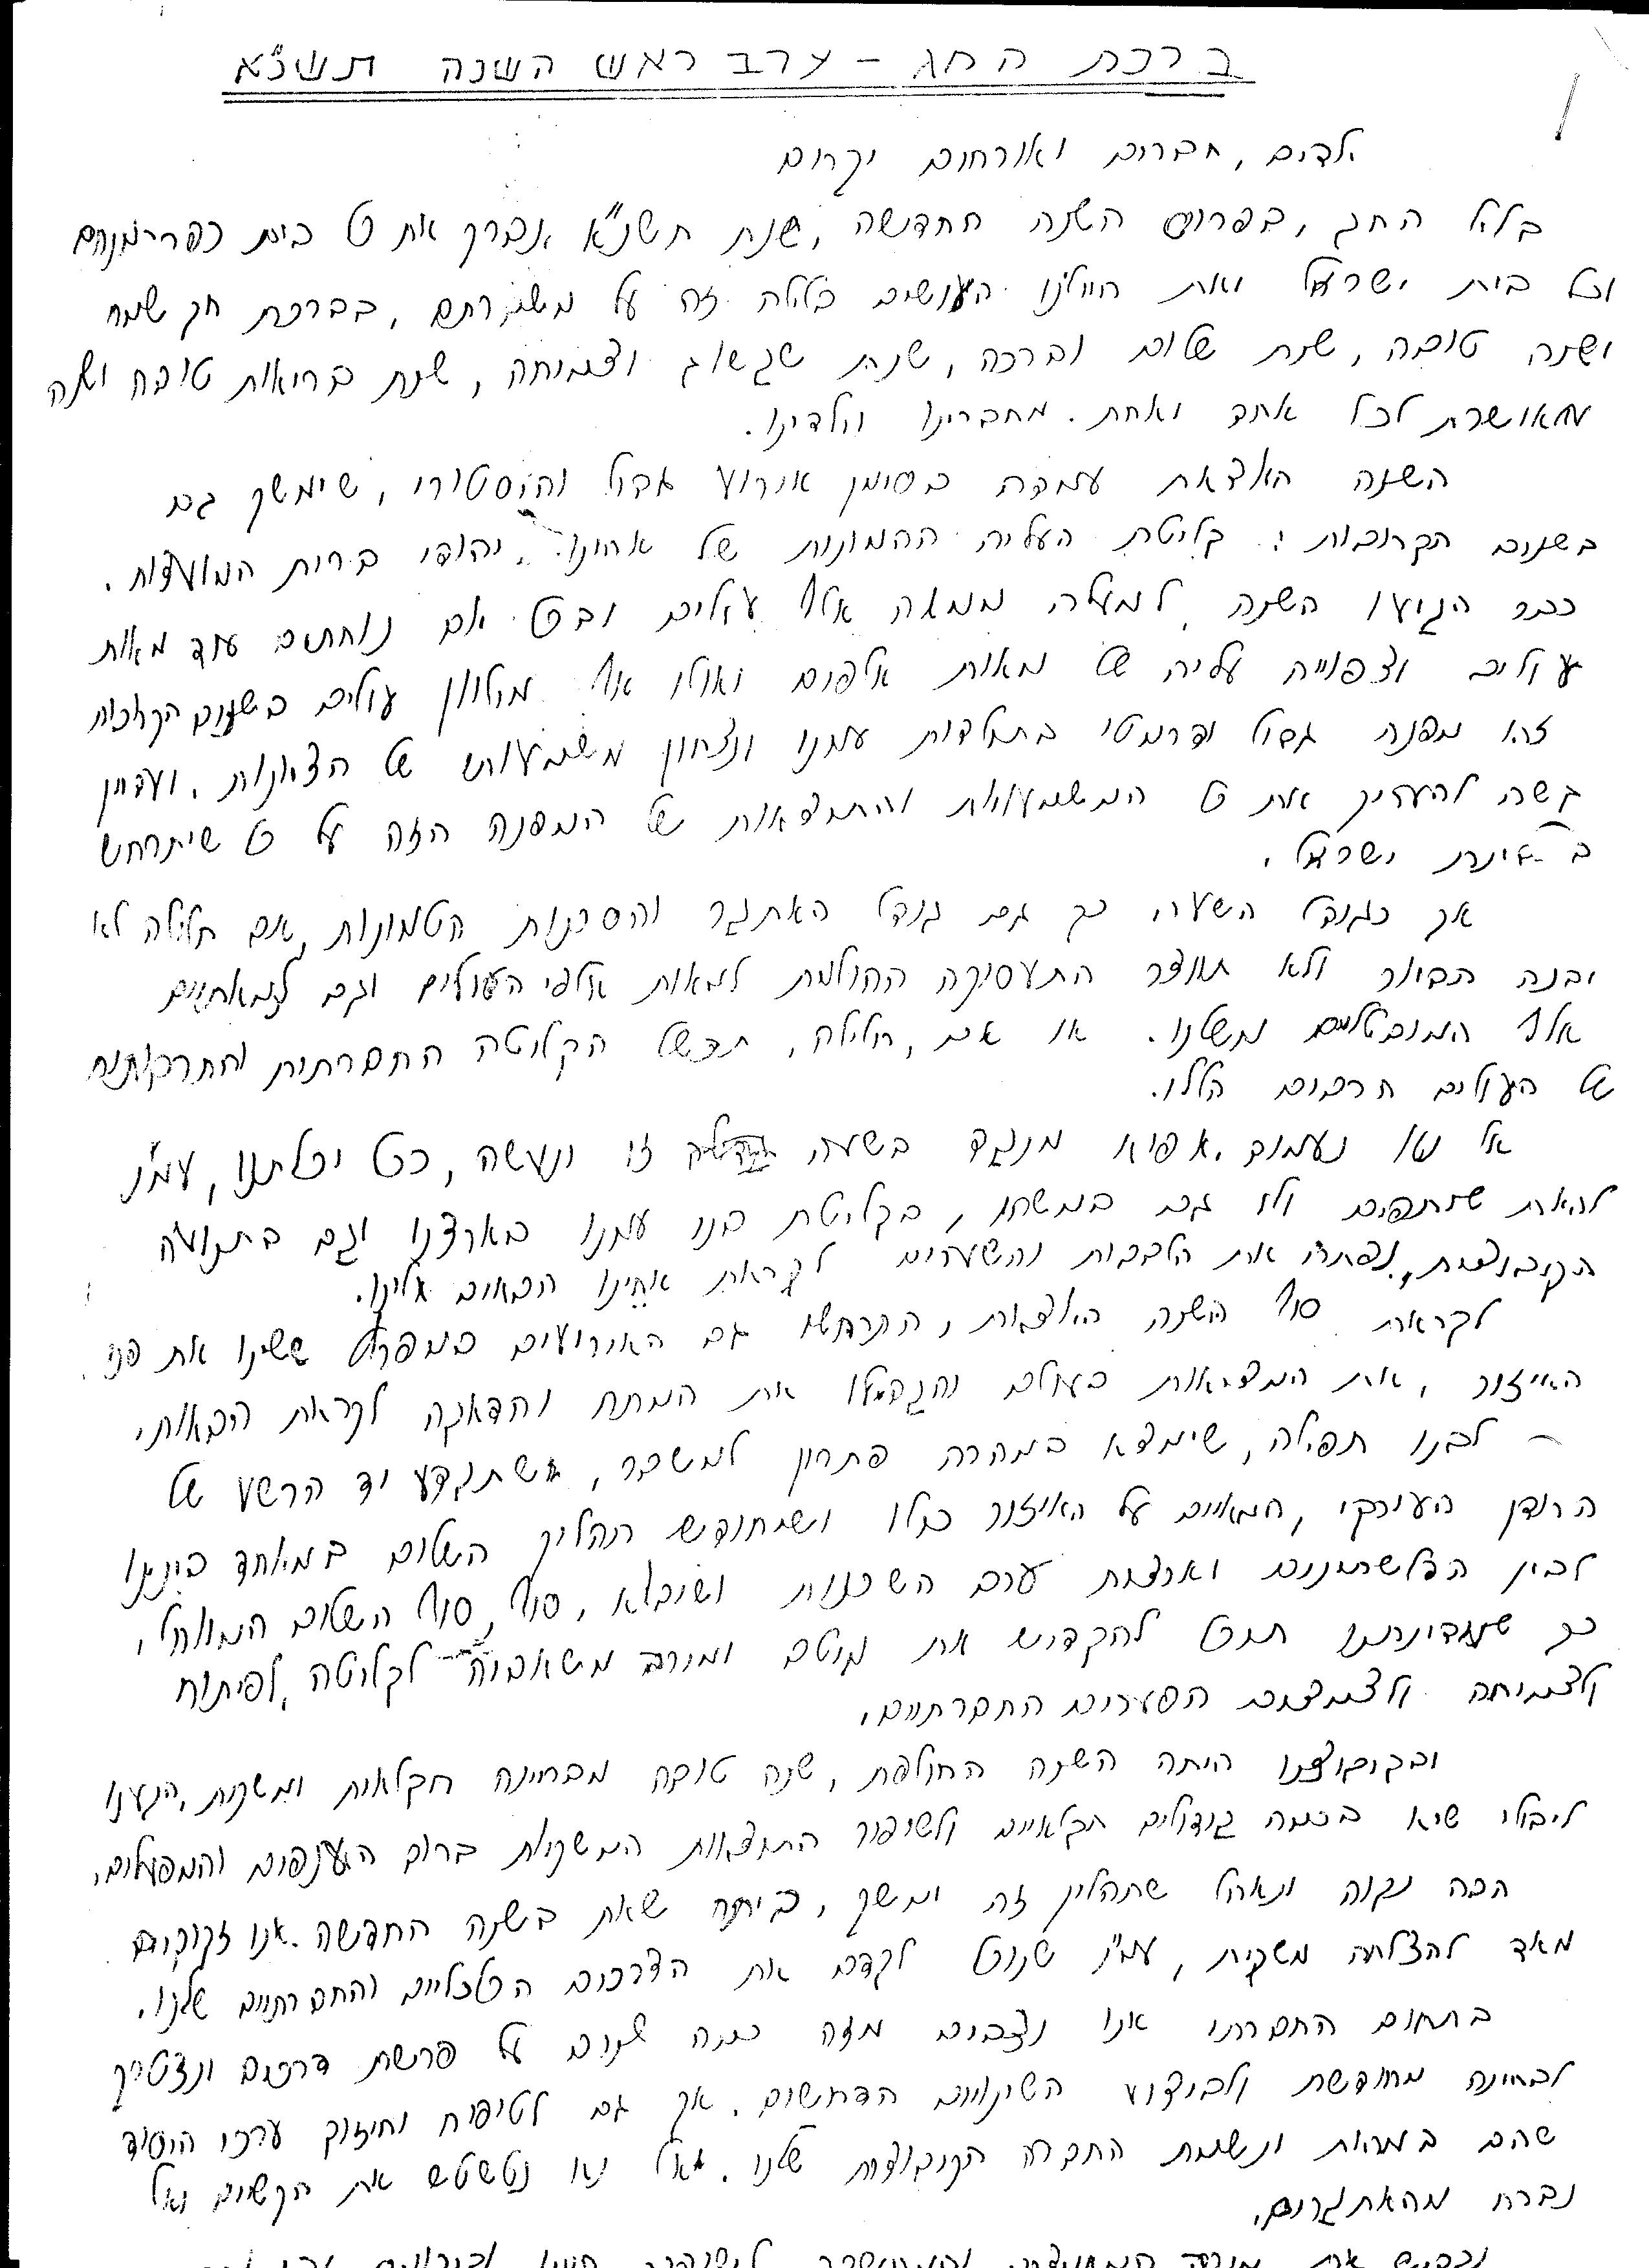 ברכת החג – ערב ראש השנה תשנ"א
ילדים, חברים ואורחים יקרים
בליל החג, בפרוס השנה החדשה, שנת תשנ"א נברך את כל בית כפר-מנחם
וכל בית ישראל ואת חיילנו העושים בלילה זה על משמרתם, בברכת חג שמח
ושנה טובה, שנת שלום וברכה, שנת שגשוג וצמיחה, שנת בריאות טובה ושנה
מאושרת לכל אחד ואחת מחברינו וילדינו.
השנה היוצאת עמדה בסימן אירוע גדול והיסטורי, שימשך גם
בשנים הקרובות: קליטת העליה ההמונית של אחינו, יהודי ברית המועצות.
כבר הגיעו השנה למעלה ממאה אלף עולים ובכל יום נוחתים עוד מאות
עולים וצפוייה עליה של מאות אלפים ואולי אף מיליון עולים בשנים הקרובות
זהו מפנה גדול ודרמטי בתולדות עמנו ונצחון משמעותי של הציונות. ועדיין
קשה להעריך את כל המשמעויות והתוצאות של המפנה הזה על כל שיתרחש
במדינת ישראל.
אך כגודל השעה כך גם גודל האתגר והסכנות הטמונות, אם חלילה לא
יבנה הדיור ולא תווצר התעסוקה ההולמת למאות אלפי העולים וגם למאתיים
אלף המובטלים משלנו. או אם, חלילה, תכשל הקליטה החברתית והתרבותית
של העולים הרבים הללו.
אל נא נעמוד איפוא מנגד בשעה גדולה זו ונעשה, ככל יכולתנו, ע"מ
להיות שותפים ולו גם במשהו, בקליטת בני עמנו בארצנו וגם בתנועה
הקיבוצית, נפתח את הלבבות והשערים לקראת אחינו הבאים אלינו.
לקראת סוף השנה היוצאת, התרחשו גם האירועים במפרץ ששינו את פני
האיזור, את המציאות בעולם והגדילו את המתח והדאגה לקראת הבאות.
– לבנו תפילה, שימצא במהרה פתרון למשבר, שתגדע יד הרשע של
הרודן העירקי, המאיים על האיזור כולו ושיחודש תהליך השלום במיוחד בינינו
לבין הפלשתינים וארצות ערב השכנות ושיבוא, סוף, סוף השלום המיוחל,
כך שמדינתנו תוכל להקדיש את מיטב ומירב משאביה לקליטה, לפיתוח
ולצמיחה ולצמצום הפערים החברתיים.
ובקיבוצנו היתה השנה החולפת, שנה טובה מבחינה חקלאית ומשקית, הגענו
ליבולי שיא בכמה גידולים חקלאיים ולשיפור התוצאות המשקיות ברוב הענפים והמפעלים.
הבה נקוה ונאחל שתהליך זה ימשך, ביתר שאת בשנה החדשה. אנו זקוקים
מאד להצלחה משקית, ע"מ שנוכל לקדם את הצרכים הכלכליים והחברתיים שלנו.
בתחום החברתי אנו נצבים מזה כמה שנים על פרשת דרכים ונצטרך
לבחינה מחודשת ולביצוע השינויים הדרושים. אך גם לטיפוח וחיזוק ערכי היסוד
שהם במהות ונשמת החברה הקיבוצית שלנו. אל נא נטשטש את הקשיים ואל
נברח מהאתגרים.